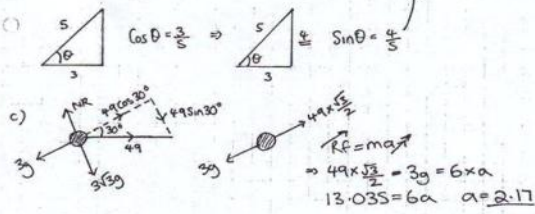 ( )
5 θ 3 Cosθ = 3/5 ⇒ 5 4 θ 3 Sinθ = 4/5
c) NR 49cos30° 49sin30° 30° 49 3g 3√3g
49×√3/2 3g
RF = ma
⇒ 49×√3/2 - 3g = 6×a
13.035 = 6a a = 2.17